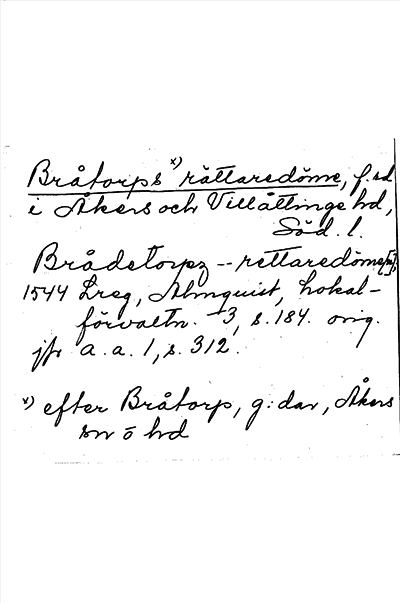 Bråtorps x) rättaredöme, f.d
i Åkers och Villåttinge hd,
Söd. l.
Brådetorpz -- rettaredöme[n],
1544 Lreg, Almquist, Lokal-
förvaltn. +3, s. 184. orig.
jfr a. a. 1, s. 312.
x) efter Bråtorp, g:dar, Åkers
sn o hd